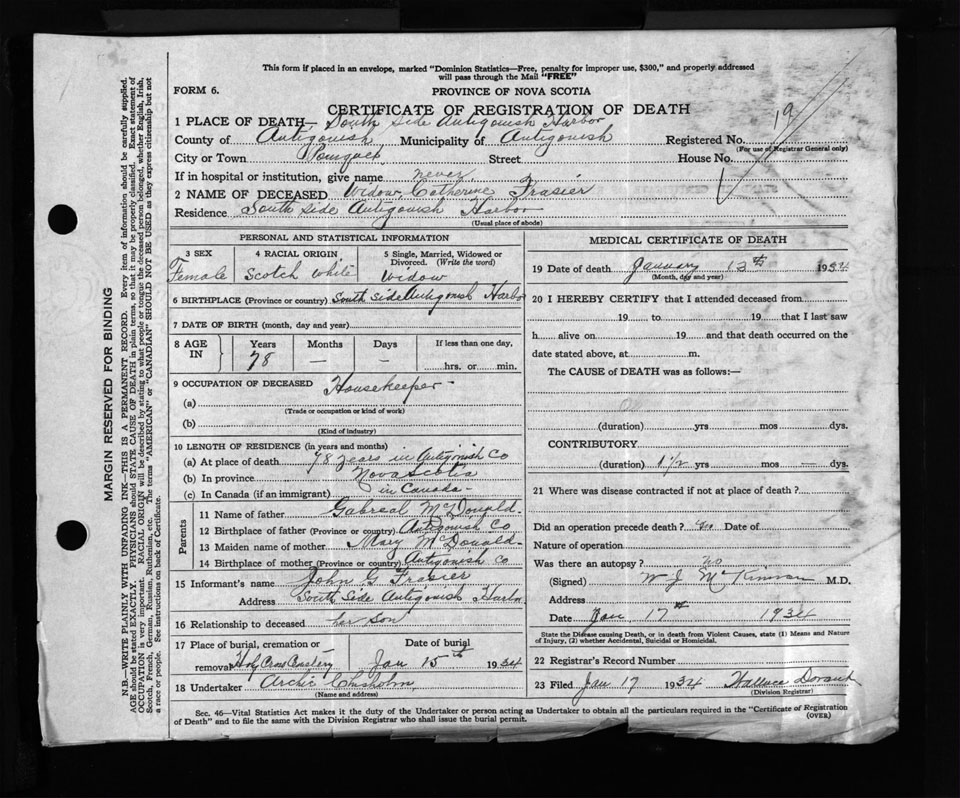 This form if placed in an envelope, marked "Dominion Statistics—Free, penalty for improper use, $300," and properly addressed
will pass through the Mail "FREE"
FORM 6.
PROVINCE OF NOVA SCOTIA
CERTIFICATE OF REGISTRATION OF DEATH
19
1 PLACE OF DEATH— South Side Antigonish Harbor
County of Antigonish Municipality of Antigonish Registered No.
(For use of Registrar General only)
City or Town Pomquet Street House No.
If in hospital or institution, give name never
2 NAME OF DECEASED Widow Catherine Frasier
Residence South Side Antigonish Harbor
(Usual place of abode)
PERSONAL AND STATISTICAL INFORMATION
3 SEX 4 RACIAL ORIGIN 5 Single, Married, Widowed or
Divorced. (Write the word)
Female Scotch White Widow
6 BIRTHPLACE (Province or country) South Side Antigonish Harbor
7 DATE OF BIRTH (month, day and year)
8 AGE IN Years Months Days If less than one day,
78 — — hrs. or min.
9 OCCUPATION OF DECEASED Housekeeper -
(a)
(Trade or occupation or kind of work)
(b)
(Kind of industry)
10 LENGTH OF RESIDENCE (in years and months)
(a) At place of death 78 years in Antigonish Co
(b) In province Nova Scotia
(c) In Canada (if an immigrant) in Canada -
Parents
11 Name of father Gabreal McDonald -
12 Birthplace of father (Province or country) Antigonish Co
13 Maiden name of mother Mary McDonald -
14 Birthplace of mother (Province or country) Antigonish Co
15 Informant's name John G Frasier
Address South Side Antigonish Harbor
16 Relationship to deceased her son
17 Place of burial, cremation or Date of burial
removal Jan 15th 1934
18 Undertaker Archie Chisholm
(Name and address)
MEDICAL CERTIFICATE OF DEATH
19 Date of death January 13th 1934
(Month, day and year)
20 I HEREBY CERTIFY that I attended deceased from
19 to 19 that I last saw
h alive on 19 and that death occurred on the
date stated above, at m.
The CAUSE of DEATH was as follows:—
(duration) yrs mos dys.
CONTRIBUTORY
(duration) 1 1/2 yrs mos — dys.
21 Where was disease contracted if not at place of death?
Did an operation precede death? no Date of
Nature of operation
Was there an autopsy? no
(Signed) W J McKinnon M.D.
Address
Date Jan 17th 1934
State the Disease causing Death, or in death from Violent Causes, state (1) Means and Nature
of Injury, (2) whether Accidental, Suicidal or Homicidal.
22 Registrar's Record Number
23 Filed Jan 17 1934 Wallace
(Division Registrar)
Sec. 46—Vital Statistics Act makes it the duty of the Undertaker or person acting as Undertaker to obtain all the particulars required in the "Certificate of Registration
of Death" and to file the same with the Division Registrar who shall issue the burial permit.
(OVER)
MARGIN RESERVED FOR BINDING
N.B.—WRITE PLAINLY WITH UNFADING INK—THIS IS A PERMANENT RECORD. Every item of information should be carefully supplied.
AGE should be stated EXACTLY. PHYSICIANS should STATE CAUSE OF DEATH in plain terms, so that it may be properly classified. Exact statement of
OCCUPATION is very important. RACIAL ORIGIN will be described by stating to what people or tongue the deceased person belonged, whether English, Irish,
Scotch, French, German, Russian, Ruthenian, etc. The terms "AMERICAN" or "CANADIAN" SHOULD NOT BE USED as they express citizenship but not
a race or people. See instructions on back of Certificate.